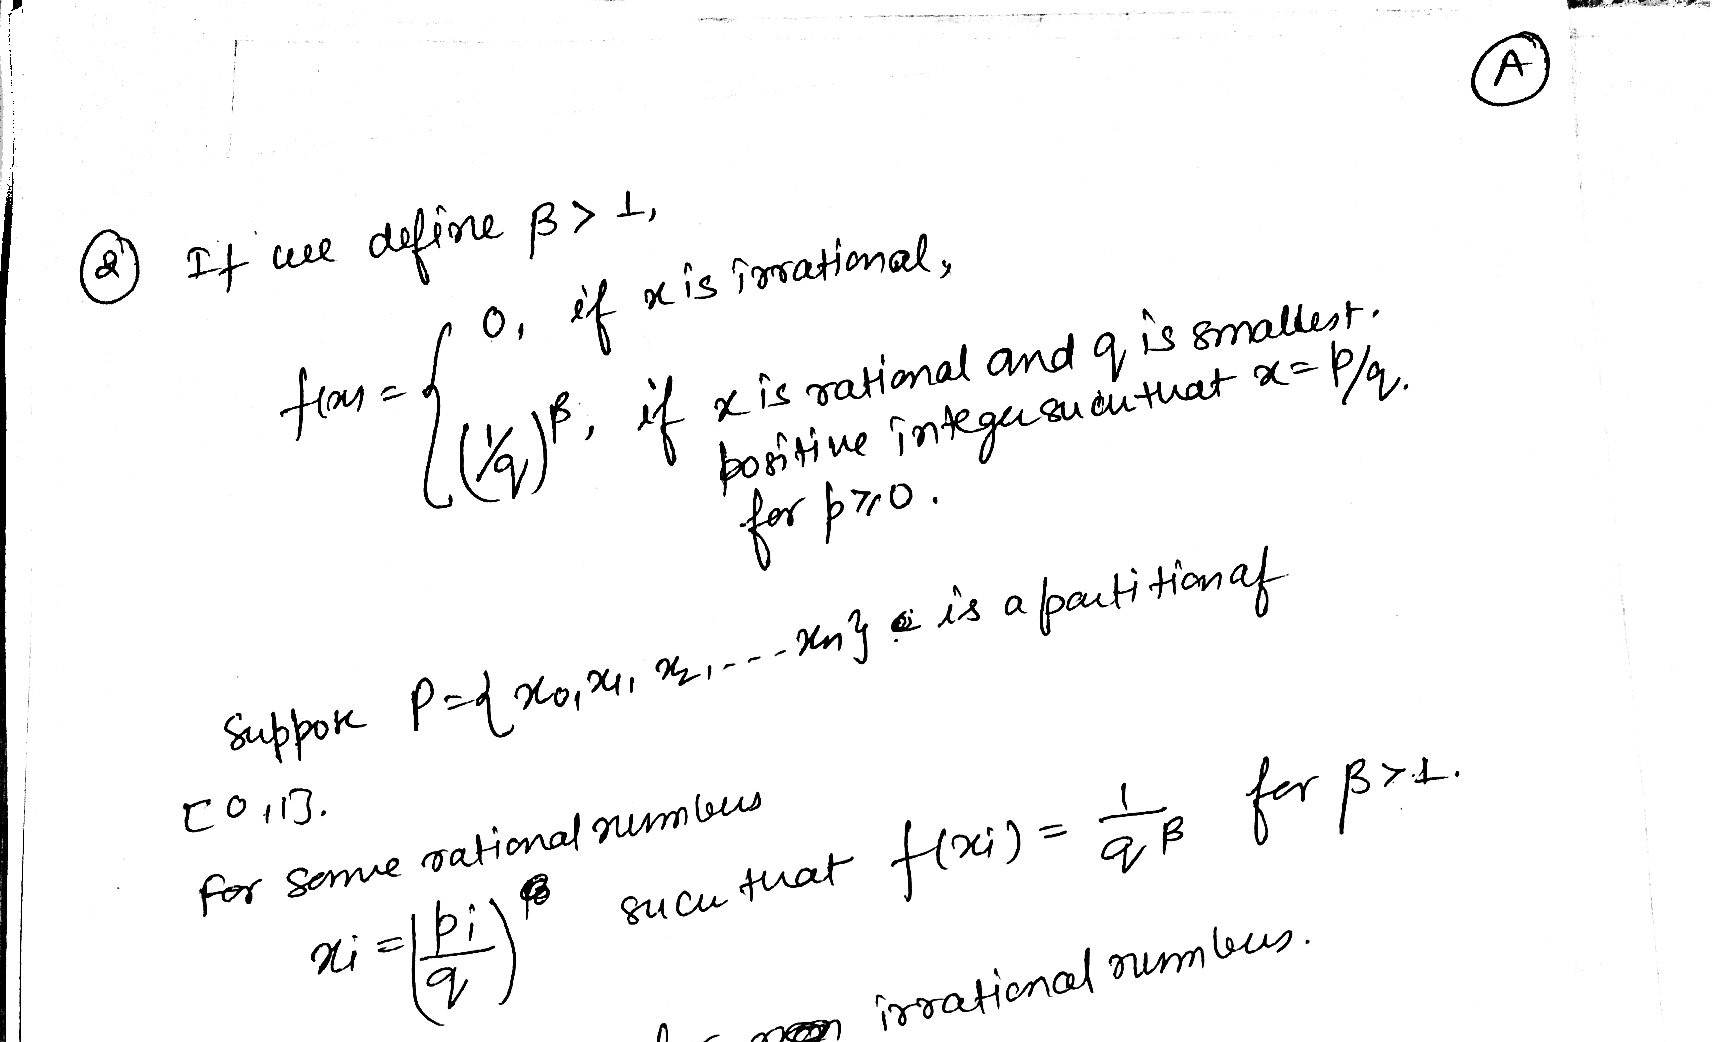 (A)
(2) If we define β > 1,
f(x) = { 0, if x is irrational,
(1/q)^β, if x is rational and q is smallest.
positive integer such that x = p/q.
for p ≥ 0.
Suppose P = { x0, x1, x2, ---xn} is a partition of
[0,1].
For some rational numbers
xi = (pi/q) such that f(xi) = 1/q^β for β > 1.
irrational numbers.